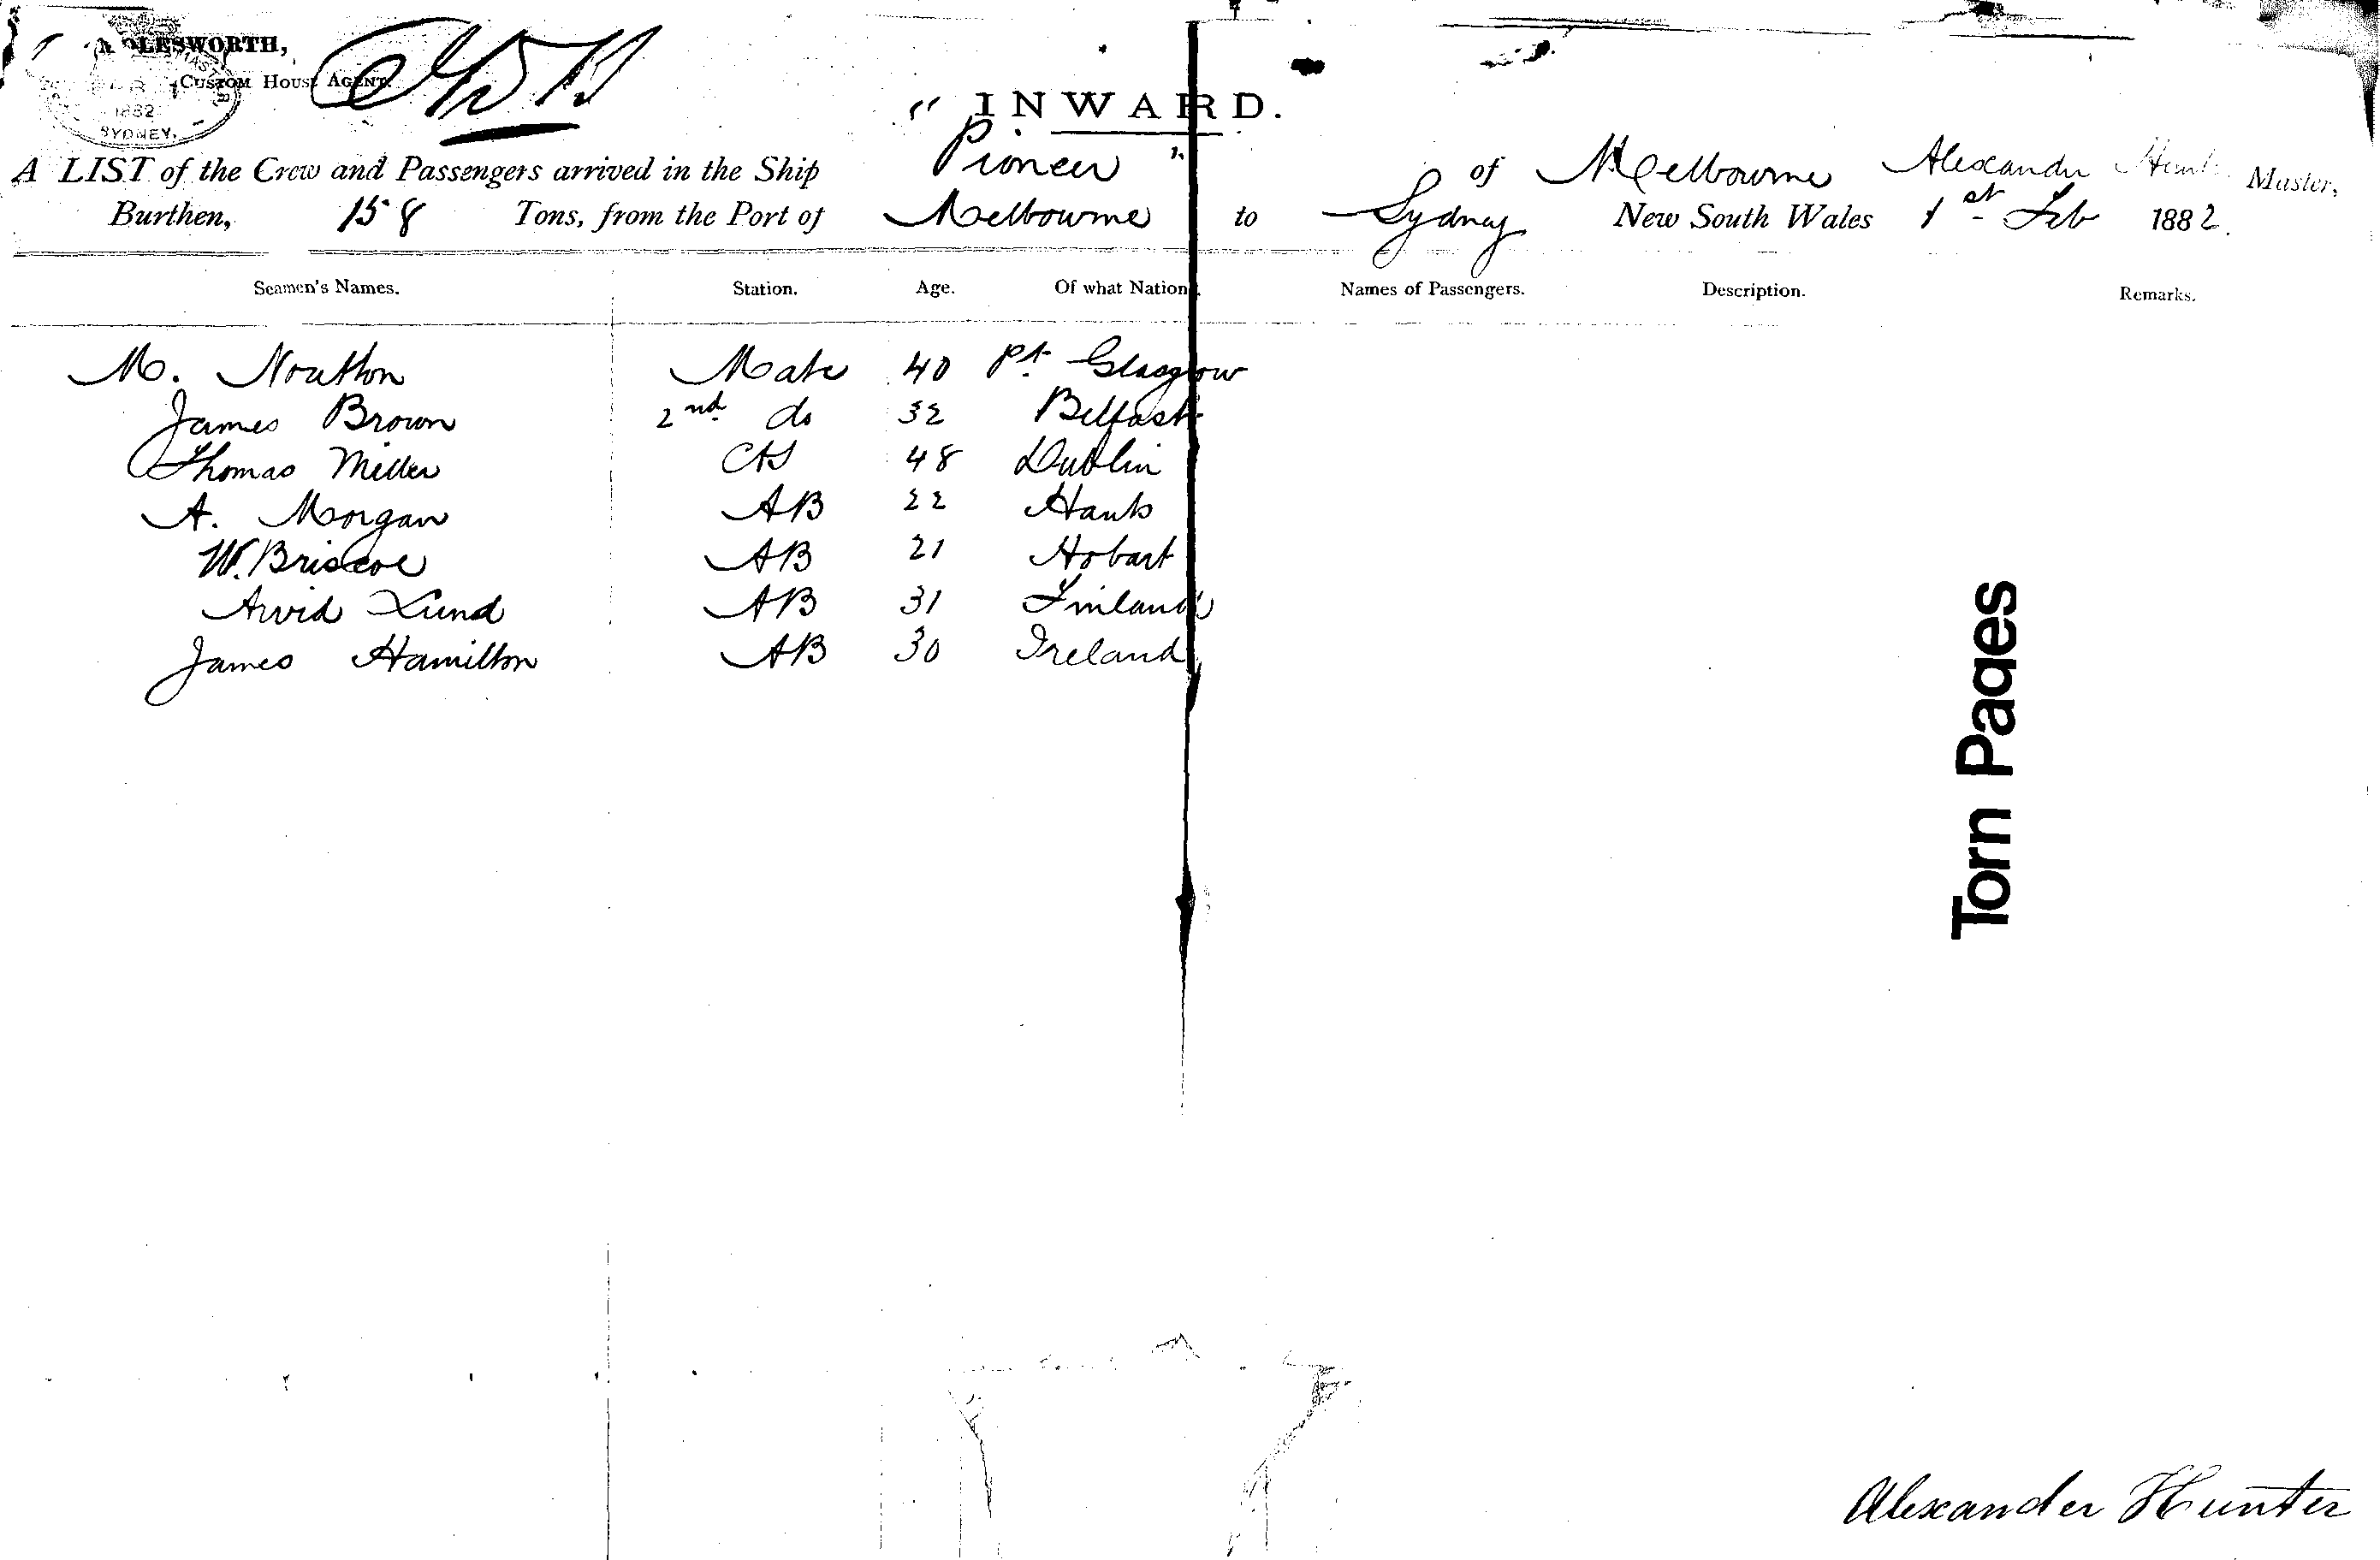 OLESWORTH,
Custom House Agent.
1882
SYDNEY.
INWARD.
A LIST of the Crew and Passengers arrived in the Ship "Pioneer" of Melbourne Alexander Master,
Burthen, 158 Tons, from the Port of Melbourne to Sydney New South Wales 1st Feb 1882.
Seamen's Names. Station. Age. Of what Nation. Names of Passengers. Description. Remarks.
M. Mate 40 Pt. Glasgow
James Brown 2nd do 32 Belfast
Thomas Miller C&S 48 Dublin
A. Morgan AB 22 Hants
W. Briscoe AB 21 Hobart
Arvid Lund AB 31 Finland
James Hamilton AB 30 Ireland
Torn Pages
Alexander Hunter